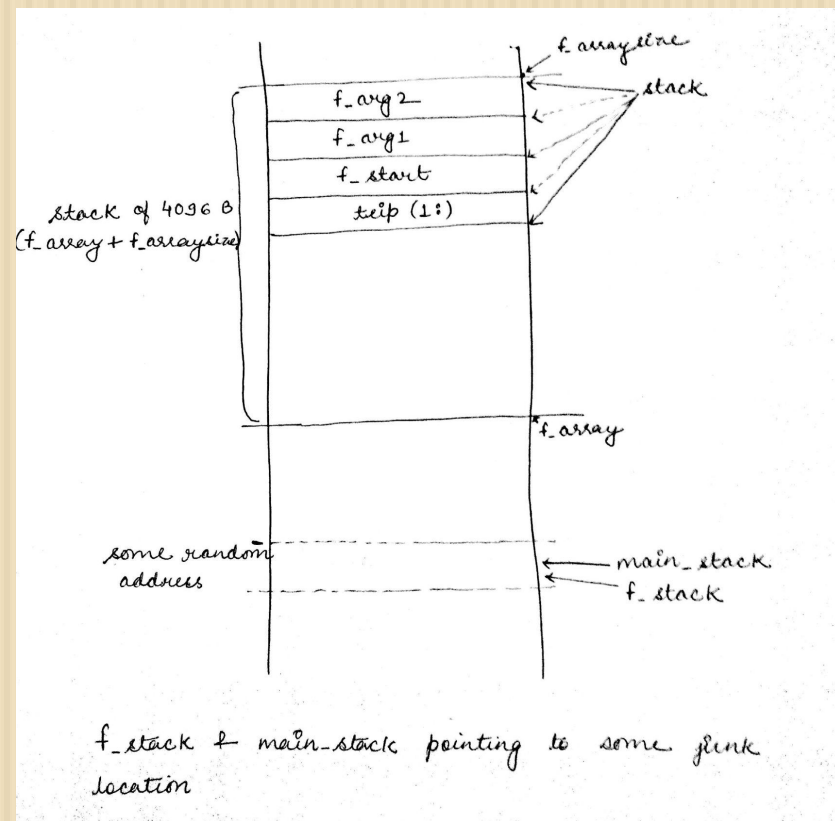 f_arraysize
stack
f_arg2
f_arg1
f_start
teip (1:)
stack of 4096 B
(f_array + f_arraysize)
f_array
some random
address
main_stack
f_stack
f_stack & main_stack pointing to some junk
location